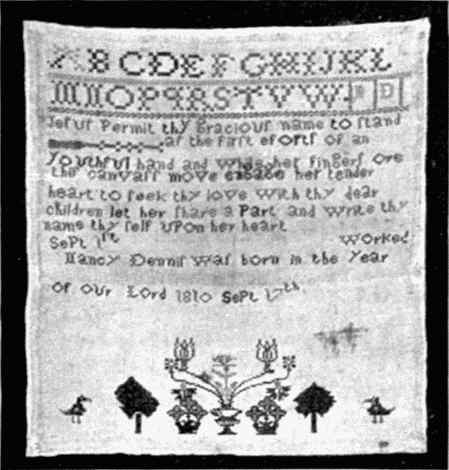 ABCDEFGHIJKL
MNOPQRSTVW
Jesus Permit thy Gracious name to stand
as the first eforts of an
youthful hand and while her fingers ore
the canvass move engage her tender
heart to seek thy love with thy dear
children let her share a Part and write thy
name thy self upon her heart
Sept 1st Worked
Nancy Dennis was born in the year
of our Lord 1810 Sept 17th